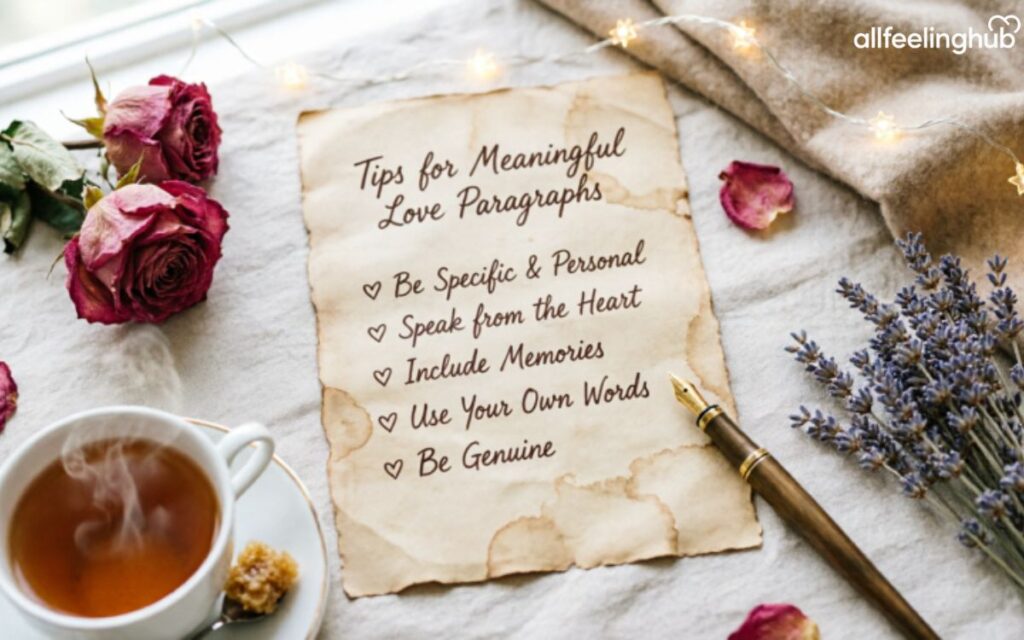 allfeelinghub
Tips for Meaningful
Love Paragraphs
Be Specific & Personal
Speak from the Heart
Include Memories
Use Your Own Words
Be Genuine